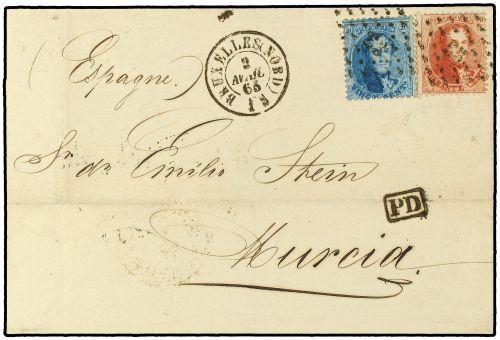 BRUXELLES (NORD)
2
AVRIL
(Espagne)
Sr. dn. Emilio Stein
PD
Murcia